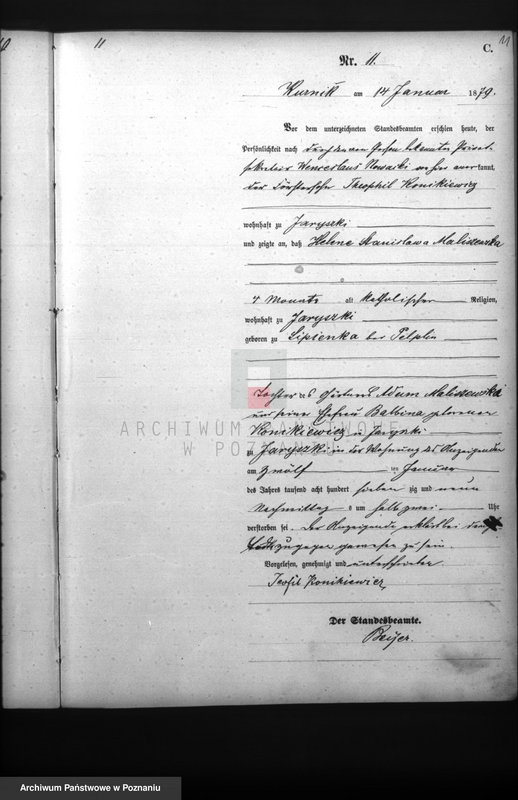 11
11
C.
Nr. 11.
Kurnik am 14 Januar 1879.
Vor dem unterzeichneten Standesbeamten erschien heute, der
Persönlichkeit nach durch den von Person bekannten Privat-
sekretair Wenceslaus Nowacki anerkannt,
der Förstersohn Theophil Konikiewicz
wohnhaft zu Jaryszki
und zeigte an, daß Helene Stanislawa Maliszewska
4 Monate alt katholischer Religion,
wohnhaft zu Jaryszki
geboren zu Lipienka bei Pelplin
Tochter des Gärtners Adam Maliszewski
und seiner Ehefrau Balbina geborener
Konikiewicz zu Jaryszki
zu Jaryszki in der Wohnung des Anzeigenden
am zwölf ten Januar
des Jahres tausend acht hundert sieben zig und neun
Nachmittags um halb zwei Uhr
verstorben sei. Der Anzeigende erklärt bei dem
Tode zugegen gewesen zu sein.
Vorgelesen, genehmigt und unterschrieben
Teofil Konikiewicz,
Der Standesbeamte.
Beijer.
ARCHIWUM PAŃSTWOWE
W POZNANIU
Archiwum Państwowe w Poznaniu